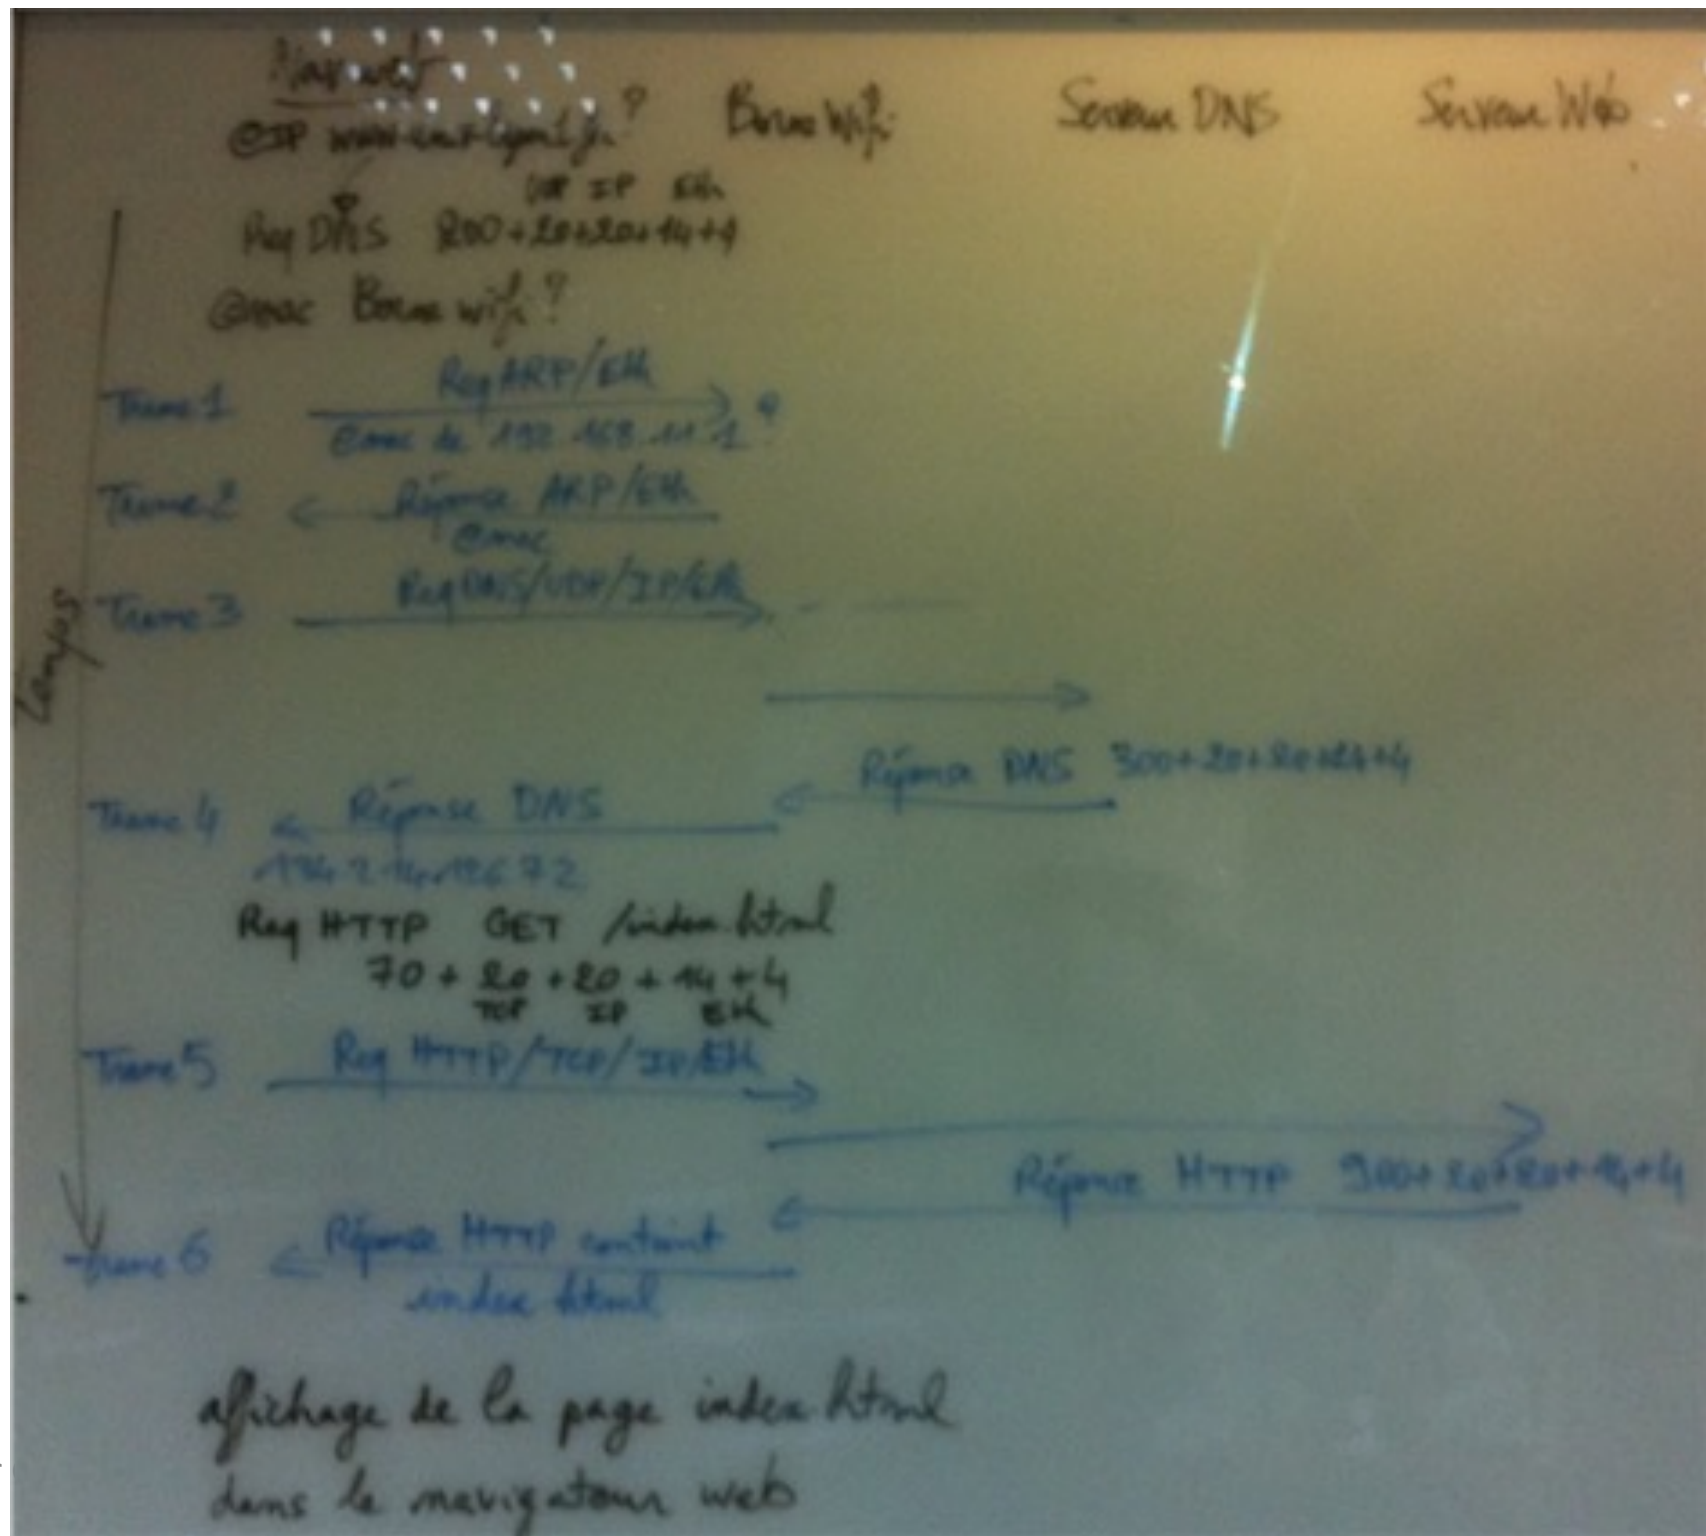 Borne Wifi Serveur DNS Serveur Web
@IP www ?
UDP IP Eth
Req DNS 200+20+20+14+4
@mac Borne wifi ?
Req ARP/Eth
Trame 1
@mac de 192.168.11.1 ?
Trame 2 Réponse ARP/Eth
@mac
Req DNS/UDP/IP/Eth
Trame 3
Temps
Réponse DNS 300+20+20+24+4
Trame 4 Réponse DNS
Req HTTP GET /index.html
70 + 20 + 20 + 14 + 4
TCP IP Eth
Trame 5 Req HTTP/TCP/IP/Eth
Réponse HTTP 900+20+20+14+4
Trame 6 Réponse HTTP contient
index.html
affichage de la page index.html
dans le navigateur web